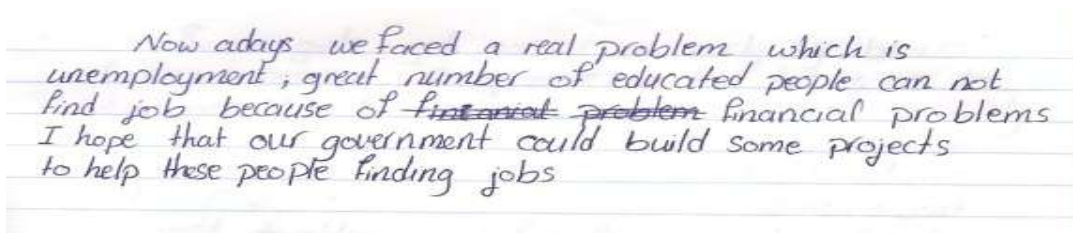 Now adays we faced a real problem which is
unemployment, great number of educated people can not
find job because of finicanial problem financial problems
I hope that our government could build some projects
to help these people finding jobs